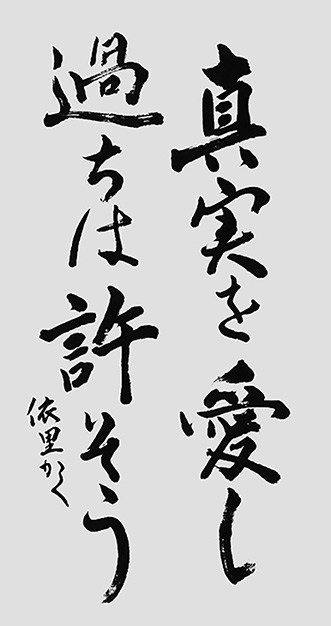 真実を愛し
過ちは許そう
依里かく